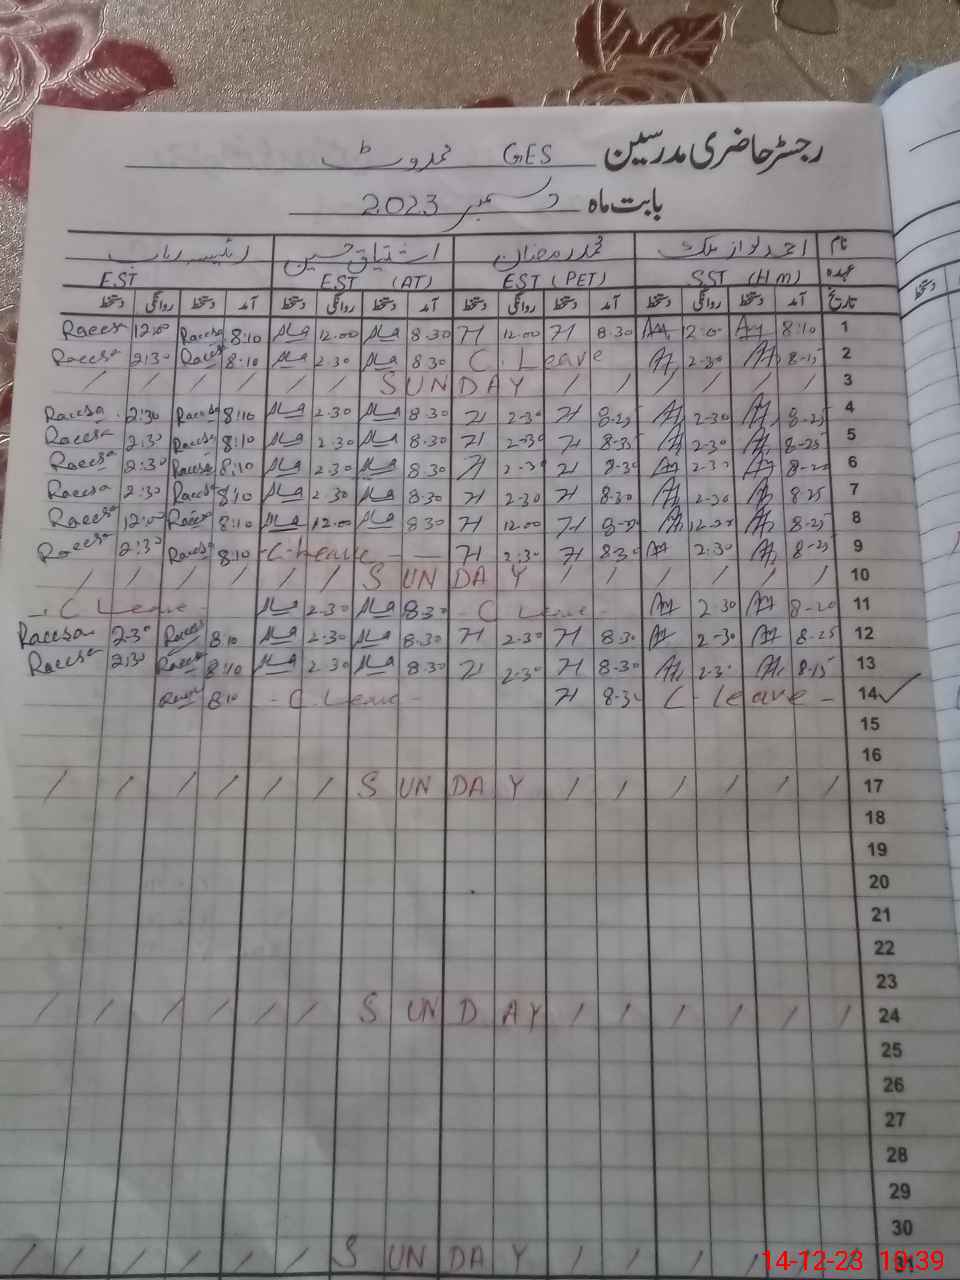 رجسٹر حاضری مدرسین GES
بابت ماہ دسمبر 2023
نام احمد نواز ملک محمد رمضان اشتیاق حسین
عہدہ SST (HM) EST (PET) EST (AT) EST
تاریخ آمد دستخط روانگی دستخط آمد دستخط روانگی دستخط آمد دستخط روانگی دستخط آمد دستخط روانگی دستخط
Raeesa 12:00 Raeesa 8:10 12.00 8.30 H 12.00 H 8.30 12.00 8:10 1
Raeesa 2:30 Raeesa 8:10 2.30 8.30 C. Leave 2-30 8-15 2
/ / / / / / SUNDAY / / / / / / 3
Raeesa 2:30 Raeesa 8:10 2.30 8.30 H 2-30 H 8-25 2-30 8-25 4
Raeesa 2:30 Raeesa 8:10 2.30 8.30 H 2-30 H 8-35 2-30 8-25 5
Raeesa 2:30 Raeesa 8:10 2.30 8.30 H 2-30 H 8-30 2-30 8-20 6
Raeesa 2:30 Raeesa 8:10 2.30 8.30 H 2-30 H 8-30 2-30 8-25 7
Raeesa 12:00 Raeesa 8:10 12.00 8.30 H 12.00 H 12-00 8-25 8
Raeesa 2:30 Raeesa 8:10 -C-Leave - - H 2:30 H 8-30 2-30 8-25 9
/ / / / / / SUNDAY / / / / / / 10
- C Leave - 2.30 8.30 - C Leave - 2-30 8-20 11
Raeesa 2-30 Raeesa 8:10 2.30 8.30 H 2-30 H 8.30 2-30 8-25 12
Raeesa 2:30 Raeesa 8:10 2.30 8.30 H 2-30 H 8-30 2-30 8-15 13
Raeesa 8:10 - C Leave - H 8-30 C-Leave - 14 ✓
15
16
/ / / / / / SUNDAY / / / / / / 17
18
19
20
21
22
23
/ / / / / / SUNDAY / / / / / / 24
25
26
27
28
29
30
/ / / / / / SUNDAY / / / / 31
14-12-23 10:39